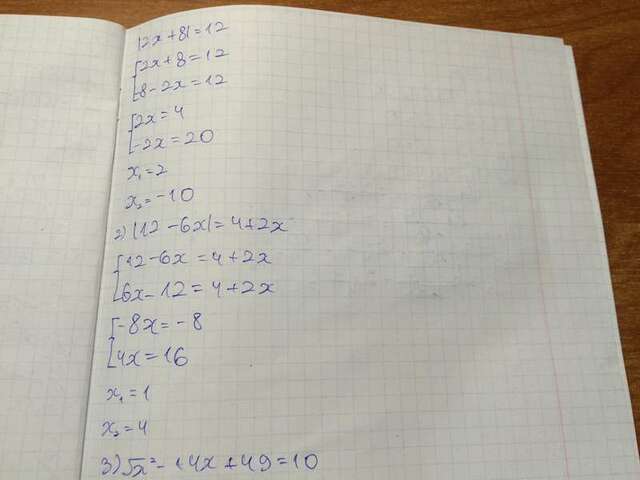 |2x+8|=12
[2x+8=12
[-8-2x=12
[2x=4
[-2x=20
x₁=2
x₂=-10
2) |12-6x|=4+2x
[12-6x=4+2x
[6x-12=4+2x
[-8x=-8
[4x=16
x₁=1
x₂=4
3) √x²-14x+49=10